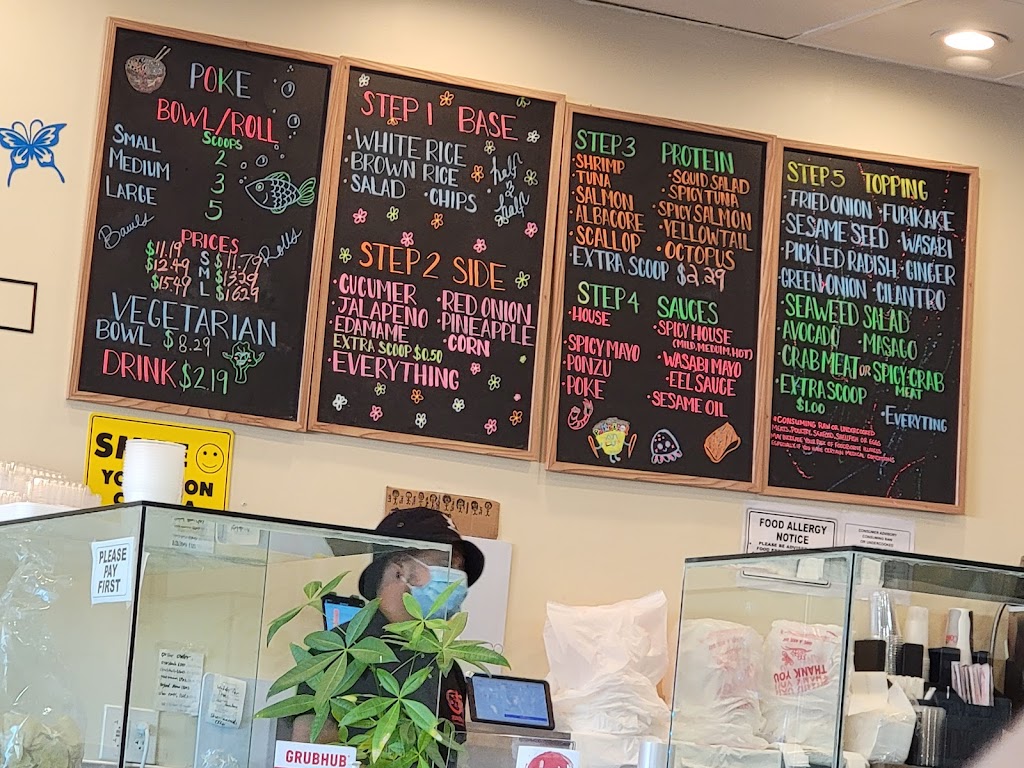 POKE
BOWL/ROLL
SCOOPS
SMALL 2
MEDIUM 3
LARGE 5
Bowls
Rolls
PRICES
$11.19 S $11.79
$12.49 M $13.39
$15.49 L $16.29
VEGETARIAN
BOWL $8.29
DRINK $2.19
STEP 1 BASE
·WHITE RICE
·BROWN RICE
·SALAD ·CHIPS
half
&
half
STEP 2 SIDE
·CUCUMER ·RED ONION
·JALAPENO ·PINEAPPLE
·EDAMAME ·CORN
EXTRA SCOOP $0.50
·EVERYTHING
STEP 3 PROTEIN
·SHRIMP ·SQUID SALAD
·TUNA ·SPICY TUNA
·SALMON ·SPICY SALMON
·ALBACORE ·YELLOWTAIL
·SCALLOP ·OCTOPUS
·EXTRA SCOOP $2.29
STEP 4 SAUCES
·HOUSE ·SPICY HOUSE
(MILD, MEDUIM, HOT)
·SPICY MAYO ·WASABI MAYO
·PONZU ·EEL SAUCE
·POKE ·SESAME OIL
STEP 5 TOPPING
·FRIED ONION ·FURIKAKE
·SESAME SEED ·WASABI
·PICKLED RADISH ·GINGER
·GREEN ONION ·CILANTRO
·SEAWEED SALAD
·AVOCADO ·MASAGO
·CRAB MEAT OR SPICY CRAB
MEAT
·EXTRA SCOOP
$1.00
·EVERYTING
*CONSUMING RAW OR UNDERCOOKED
MEATS, POULTRY, SEAFOOD, SHELLFISH OR EGGS
MAY INCREASE YOUR RISK OF FOODBORNE ILLNESS
ESPECIALLY IF YOU HAVE CERTAIN MEDICAL CONDITIONS
FOOD ALLERGY
NOTICE
PLEASE
PAY
FIRST
THANK
YOU
GRUBHUB